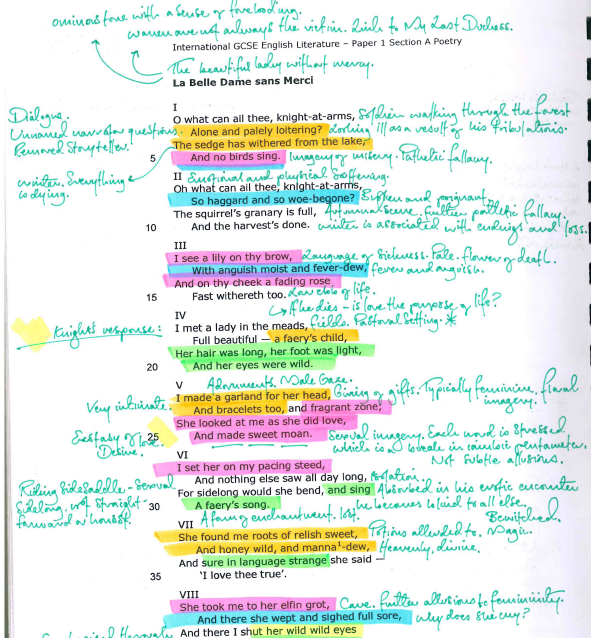 ominous tone with a sense of foreboding.
women are not always the victim. Link to My Last Duchess.
International GCSE English Literature – Paper 1 Section A Poetry
The beautiful lady without mercy.
La Belle Dame sans Merci
I
O what can ail thee, knight-at-arms, Soldier walking through the forest
Dialogue.
Unnamed narrator questions. Alone and palely loitering? Looking ill as a result of his tribulations.
Removed storyteller. The sedge has withered from the lake,
5 And no birds sing. Imagery of misery. Pathetic fallacy.
II Emotional and physical suffering.
winter. Everything is dying.
Oh what can ail thee, knight-at-arms,
So haggard and so woe-begone? Broken and poignant.
The squirrel's granary is full, Autumn scene. Further pathetic fallacy.
10 And the harvest's done. winter is associated with endings and loss.
III
I see a lily on thy brow, Language of sickness. Pale. flower of death.
With anguish moist and fever-dew, fever and anguish.
And on thy cheek a fading rose
15 Fast withereth too. Low ebb of life.
If he dies – is love the purpose of life?
IV
Knight's response: I met a lady in the meads, fields. Pastoral setting. *
Full beautiful — a faery's child,
Her hair was long, her foot was light,
20 And her eyes were wild.
V Adornments. Male Gaze.
I made a garland for her head, Giving of gifts. Typically feminine, floral imagery.
Very intimate. And bracelets too, and fragrant zone;
She looked at me as she did love,
Ecstasy of love. Desire. 25 And made sweet moan. Sexual imagery. Each word is stressed
which is a break in iambic pentameter.
Not subtle allusions.
VI
I set her on my pacing steed,
And nothing else saw all day long, isolation.
Riding sidesaddle – sexual For sidelong would she bend, and sing Absorbed in his erotic encounter
sidelong, not straight-forward or honest. 30 A faery's song. he becomes blind to all else.
VII A form of enchantment. lost. Bewitched.
She found me roots of relish sweet, Potions alluded to. Magic.
And honey wild, and manna¹-dew, Heavenly, divine.
And sure in language strange she said —
35 'I love thee true'.
VIII
She took me to her elfin grot, Cave. further allusions to femininity.
And there she wept and sighed full sore, why does she cry?
And there I shut her wild wild eyes
through